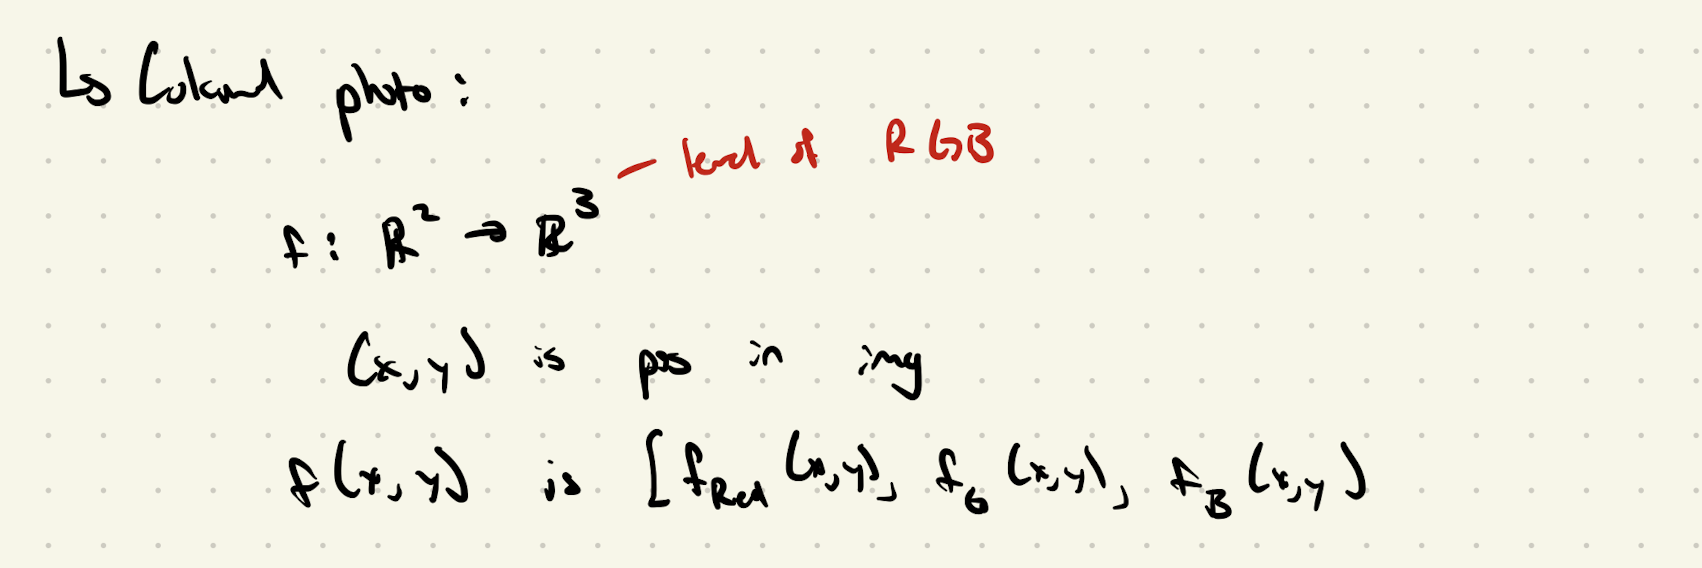 ↳ Coloured photo:
— level of RGB
f: ℝ² → ℝ³
(x,y) is pos in img
f(x,y) is [f_Red (x,y), f_G (x,y), f_B (x,y)